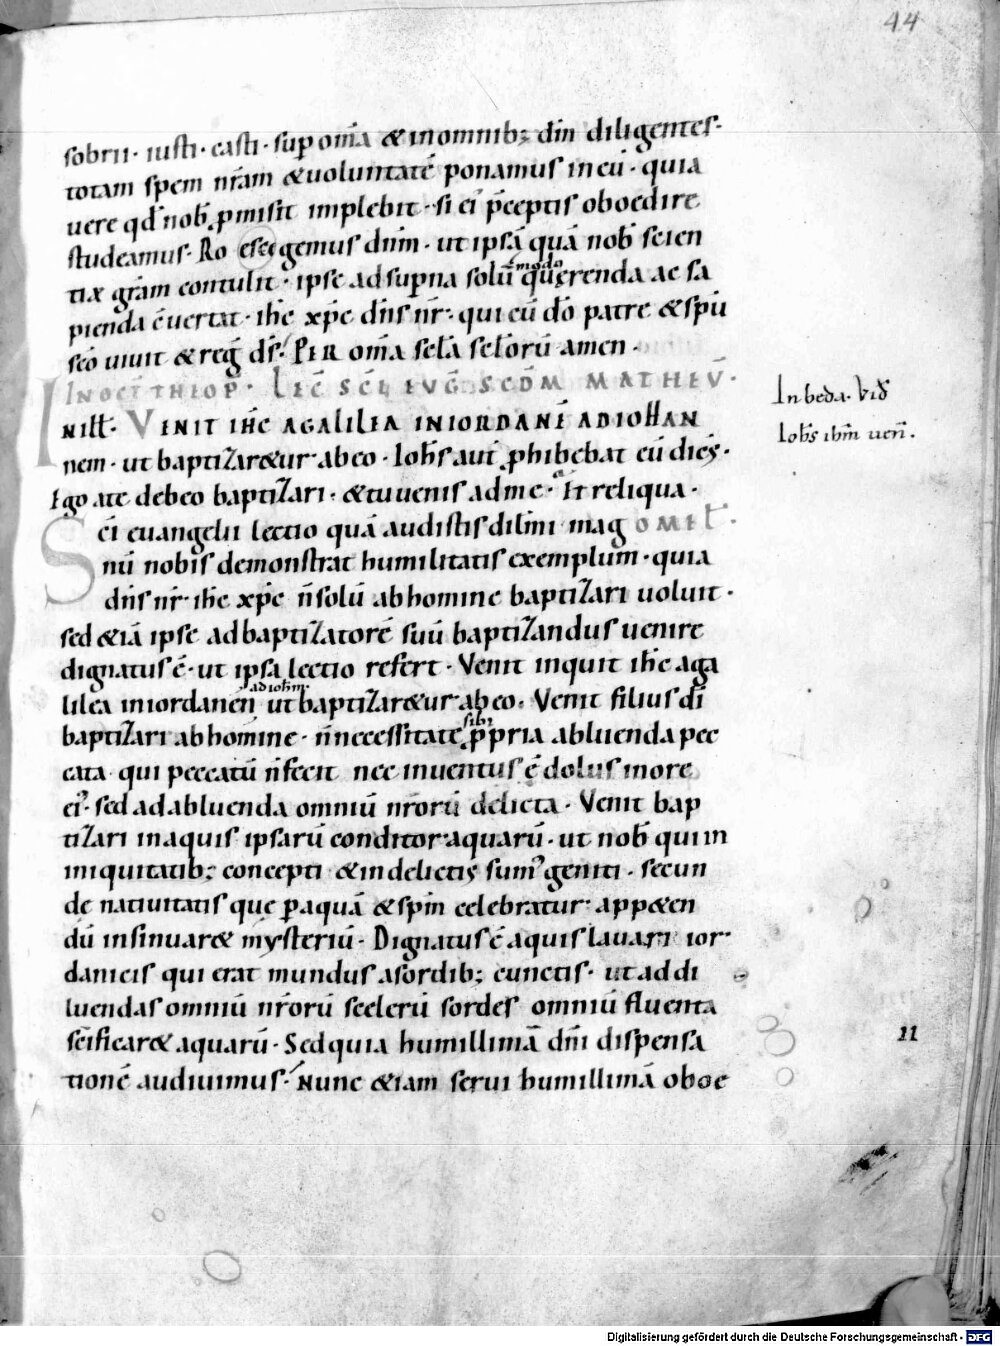 44
sobrii · iusti · casti · sup om̄a & in omnib; dn̄m diligentes ·
totam spem nr̄am & voluntatē ponamus in eū · quia
uere qđ nob̄ pmisit implebit · si ei' p̄ceptis oboedire
studeamus · Ro gemus dn̄m · ut ipsā quā nob̄ scien
tiæ grām contulit · ipse ad supna solū modo querenda ac sa
pienda ēuertat · ih̄c xp̄c dn̄s nr̄ · qui cū dō patre & spū
sc̄o uiuit & reḡ dś · PER om̄a sc̄la sc̄lorū amen ·
IN OCT̄ THIOP̄ · LEC̄ SC̄I EVḠ SCD̄M MATHEV̄ ·
IN ILL̄ · VENIT IH̄C A GALILEA IN IORDANĒ AD IOHAN
nem · ut baptizar&ur ab eo · Ioh̄s aut̄ phibebat eū dicēs ·
Ego a te debeo baptizari · & tu uenis ad me · Et reliqua ·
Sc̄i euangelii lectio quā audistis dil̄mi mag OMEL̄ ·
nū nobis demonstrat humilitatis exemplum · quia
dn̄s nr̄ ih̄c xp̄c n̄ solū ab homine baptizari uoluit ·
sed &iā ipse ad baptizatorē suū baptizandus uenire
dignatus ē · ut ipsa lectio refert · Venit inquit ih̄c a ga
lilea in iordanen ad ioh̄m ut baptizar&ur ab eo · Venit filius dī
baptizari ab homine · n̄ necessitate sibi ppria abluenda pec
cata qui peccatū n̄ fecit nec inuentus ē dolus in ore
ei' · sed ad abluenda omniū nr̄orū delicta · Venit bap
tizari in aquis ipsarū conditor aquarū · ut nob̄ qui in
iniquitatib; concepti & in delictis sum' geniti · secun
de nativitatis que p aquā & spm̄ celebratur · app&en
dū insinuar& mysteriū · Dignatus ē aquis lauari ior
danicis qui erat mundus a sordib; cunctis · ut ad di
luendas omniū nr̄orū scelerū sordes omniū fluenta
sc̄ificar& aquarū · Sed quia humillimā dn̄i dispensa
tionē audiuimus · Nunc &iam serui humillimā oboe
In beda · Vid̄
Ioh̄s ihm̄ ueñ .
11
Digitalisierung gefördert durch die Deutsche Forschungsgemeinschaft - DFG